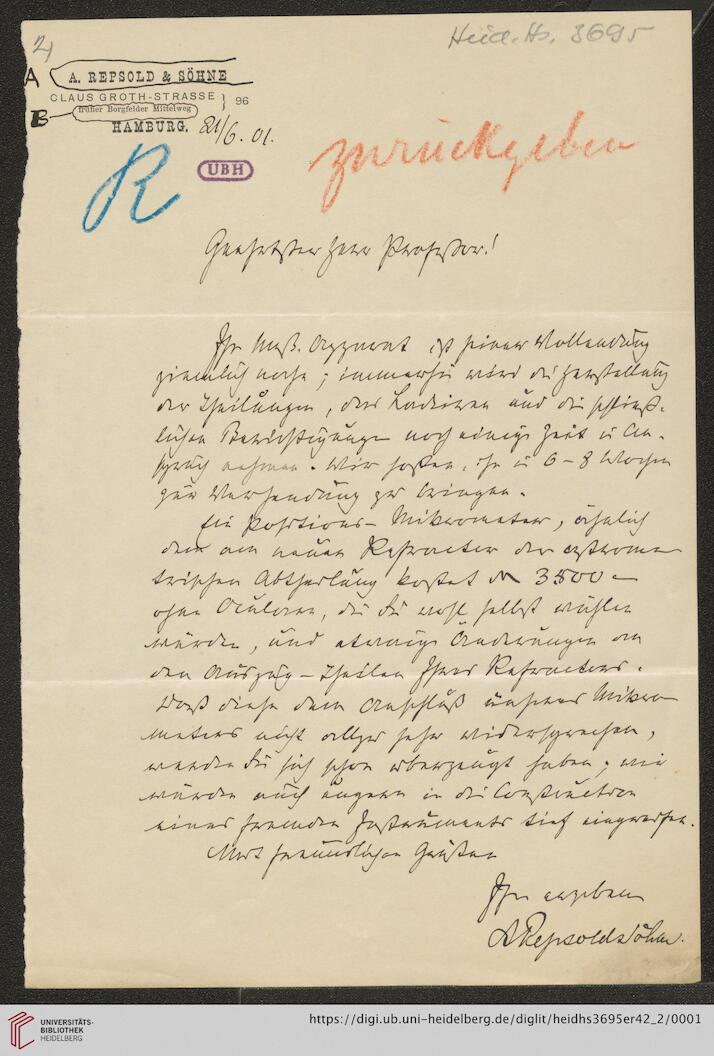 2)
Heid. Hs. 3695
A
A. REPSOLD & SÖHNE
CLAUS GROTH-STRASSE } 96
B
früher Borgfelder Mittelweg
HAMBURG. 21/6. 01.
R
UBH
zurückgeben
Geehrtester Herr Professor!
Ihr Meß-Apparat ist seiner Vollendung
ziemlich nahe; immerhin wird die Herstellung
der Theilungen, das Lackiren und die schließ-
lichen Berichtigungen noch einige Zeit in An-
spruch nehmen. Wir hoffen, ihn in 6–8 Wochen
zur Versendung zu bringen.
Ein Positions-Mikrometer, ähnlich
dem am neuen Refractor der astrome-
trischen Abtheilung kostet M 3500 –
ohne Oculare, die Sie wohl selbst wählen
würden, und etwaige Änderungen an
den Auszug-Theilen Ihres Refractors.
Daß diese dem Anschluß unseres Mikro-
meters nicht allzu sehr widersprechen,
werden Sie sich schon überzeugt haben; wir
würden auch ungern in die Construction
eines fremden Instruments tief eingreifen.
Mit freundlichen Grüßen
Ihr ergeben
A Repsold & Söhne.
UNIVERSITÄTS-
BIBLIOTHEK
HEIDELBERG
https://digi.ub.uni-heidelberg.de/diglit/heidhs3695er42_2/0001